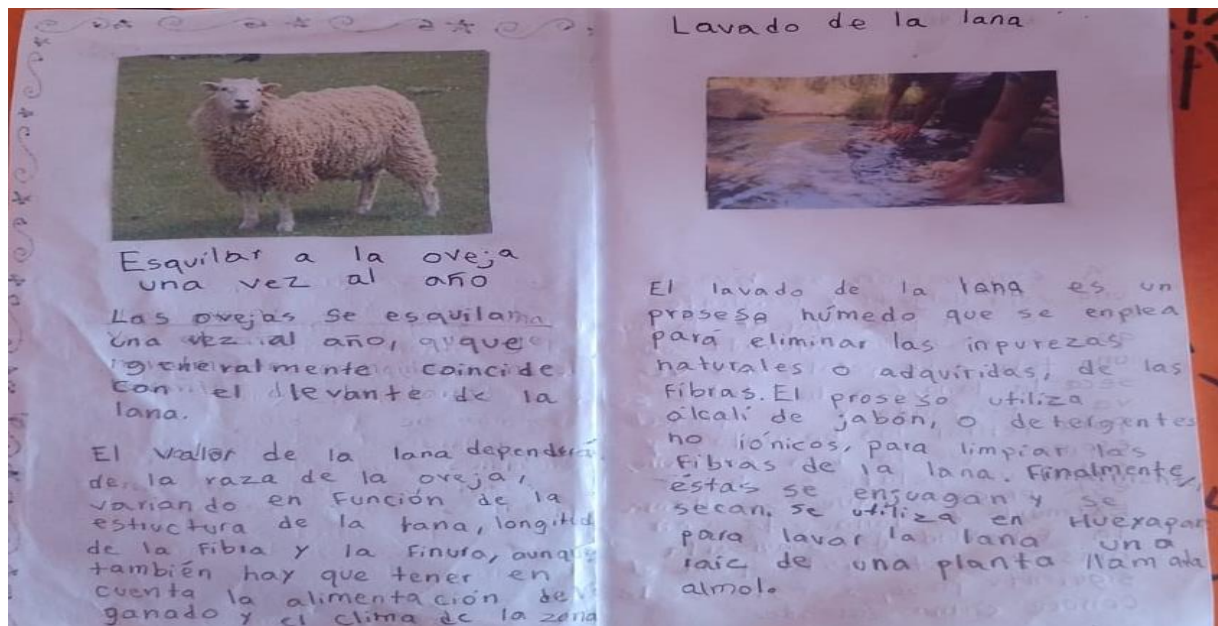 Esquilar a la oveja
una vez al año
Las ovejas se esquilan
una vez al año, que
generalmente coincide
con el levante de la
lana.
El valor de la lana dependerá
de la raza de la oveja,
variando en función de la
estructura de la lana, longitud
de la fibra y la finura, aunque
también hay que tener en
cuenta la alimentación del
ganado y el clima de la zona
Lavado de la lana
El lavado de la lana es un
proseso húmedo que se enplea
para eliminar las inpurezas
naturales o adquíridas, de las
fibras. El proseso utiliza
álcali de jabón, o detergentes
no iónicos, para limpiar las
fibras de la lana. Finalmente,
estas se enjuagan y se
secan. Se utiliza en Hueyapan
para lavar la lana una
raíc de una planta llamada
almol.